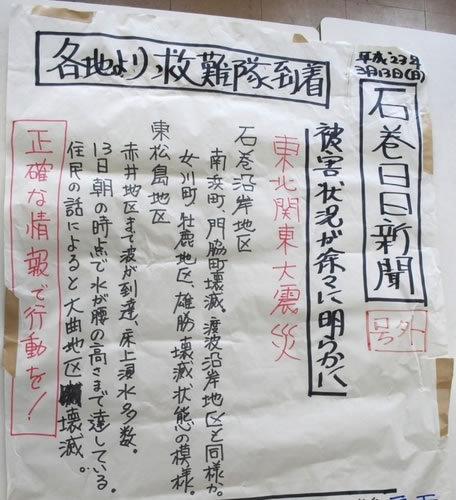 平成23年
3月13日(日)
石巻日日新聞
号外
各地より救難隊到着
被害状況が徐々に明らかに
東北関東大震災
石巻沿岸地区
南浜町 門脇町壊滅。渡波沿岸地区も同様か。
女川町 牡鹿地区、雄勝 壊滅状態の模様。
東松島地区
赤井地区まで波が到達、床上浸水多数。
13日朝の時点で水が腰の高さまで達している。
住民の話によると大曲地区壊滅。
正確な情報で行動を！